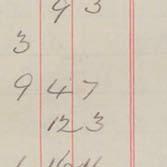 9 3
3
9 4 7
12 3